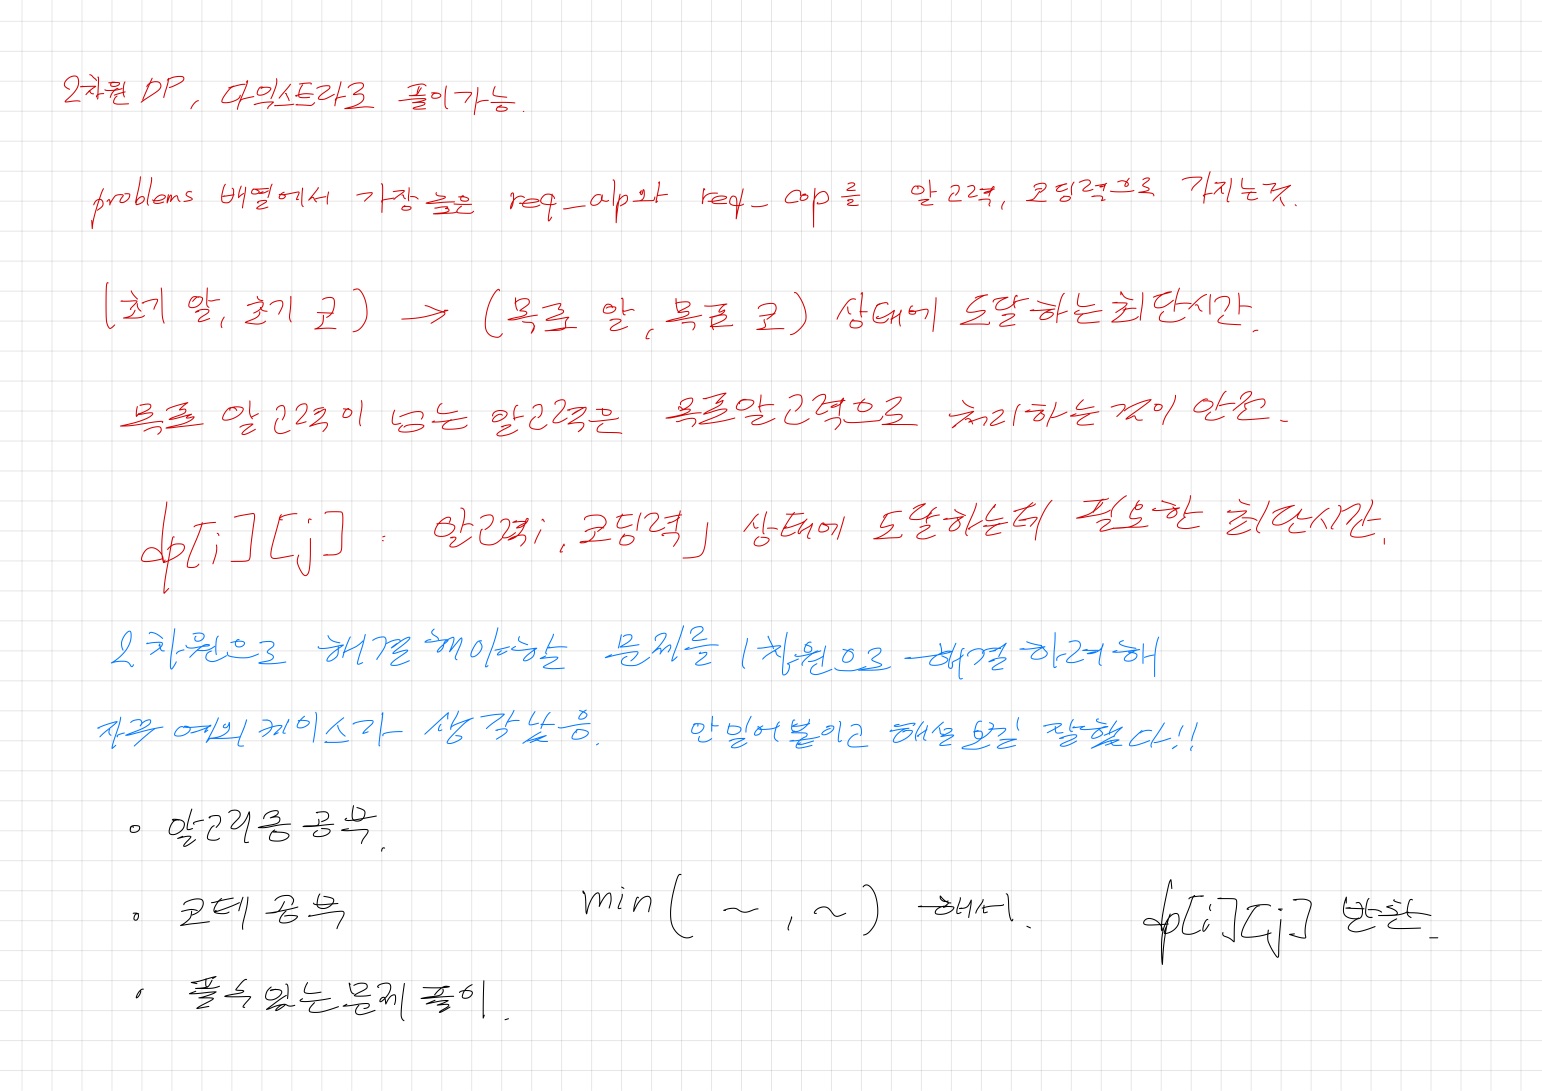 2차원 DP, 다익스트라로 풀이가능.
problems 배열에서 가장 높은 req_alp와 req_cop를 알고력, 코딩력으로 가지는것.
(초기 알, 초기 코) → (목표 알, 목표 코) 상태에 도달하는 최단시간.
목표 알고력이 넘는 알고력은 목표알고력으로 처리하는것이 안전.
dp[i][j] : 알고력i, 코딩력j 상태에 도달하는데 필요한 최단시간.
2차원으로 해결해야할 문제를 1차원으로 해결하려해
자꾸 예외케이스가 생각났음. 안밀어붙이고 해설보길 잘했다!!
• 알고리즘 공부.
• 코테 공부 min( ~ , ~ ) 해서. dp[i][j] 반환.
• 풀수있는문제 풀이.